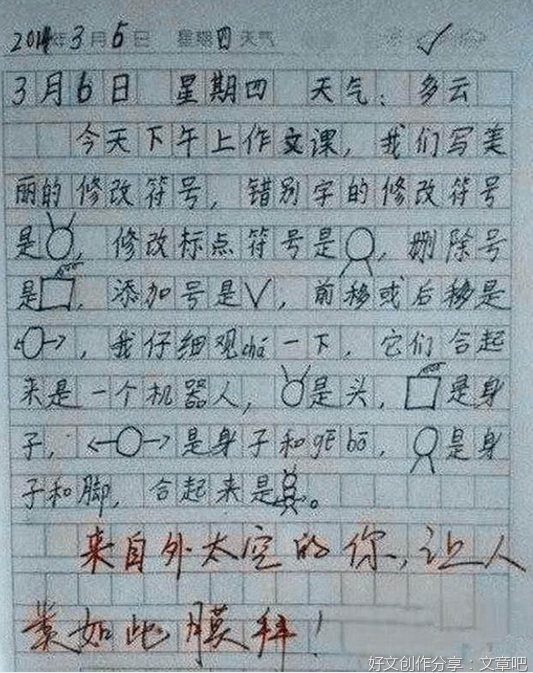 2014年3月6日 星期四 天气
3月6日 星期四 天气：多云
今天下午上作文课，我们写美
丽的修改符号，错别字的修改符号
是，修改标点符号是，删除号
是，添加号是√，前移或后移是
←○→，我仔细观chá一下，它们合起
来是一个机器人，是头，是身
子，←○→是身子和gē bō，是身
子和脚，合起来是。
来自外太空的你，让人
如此膜拜！
好文创作分享：文章吧